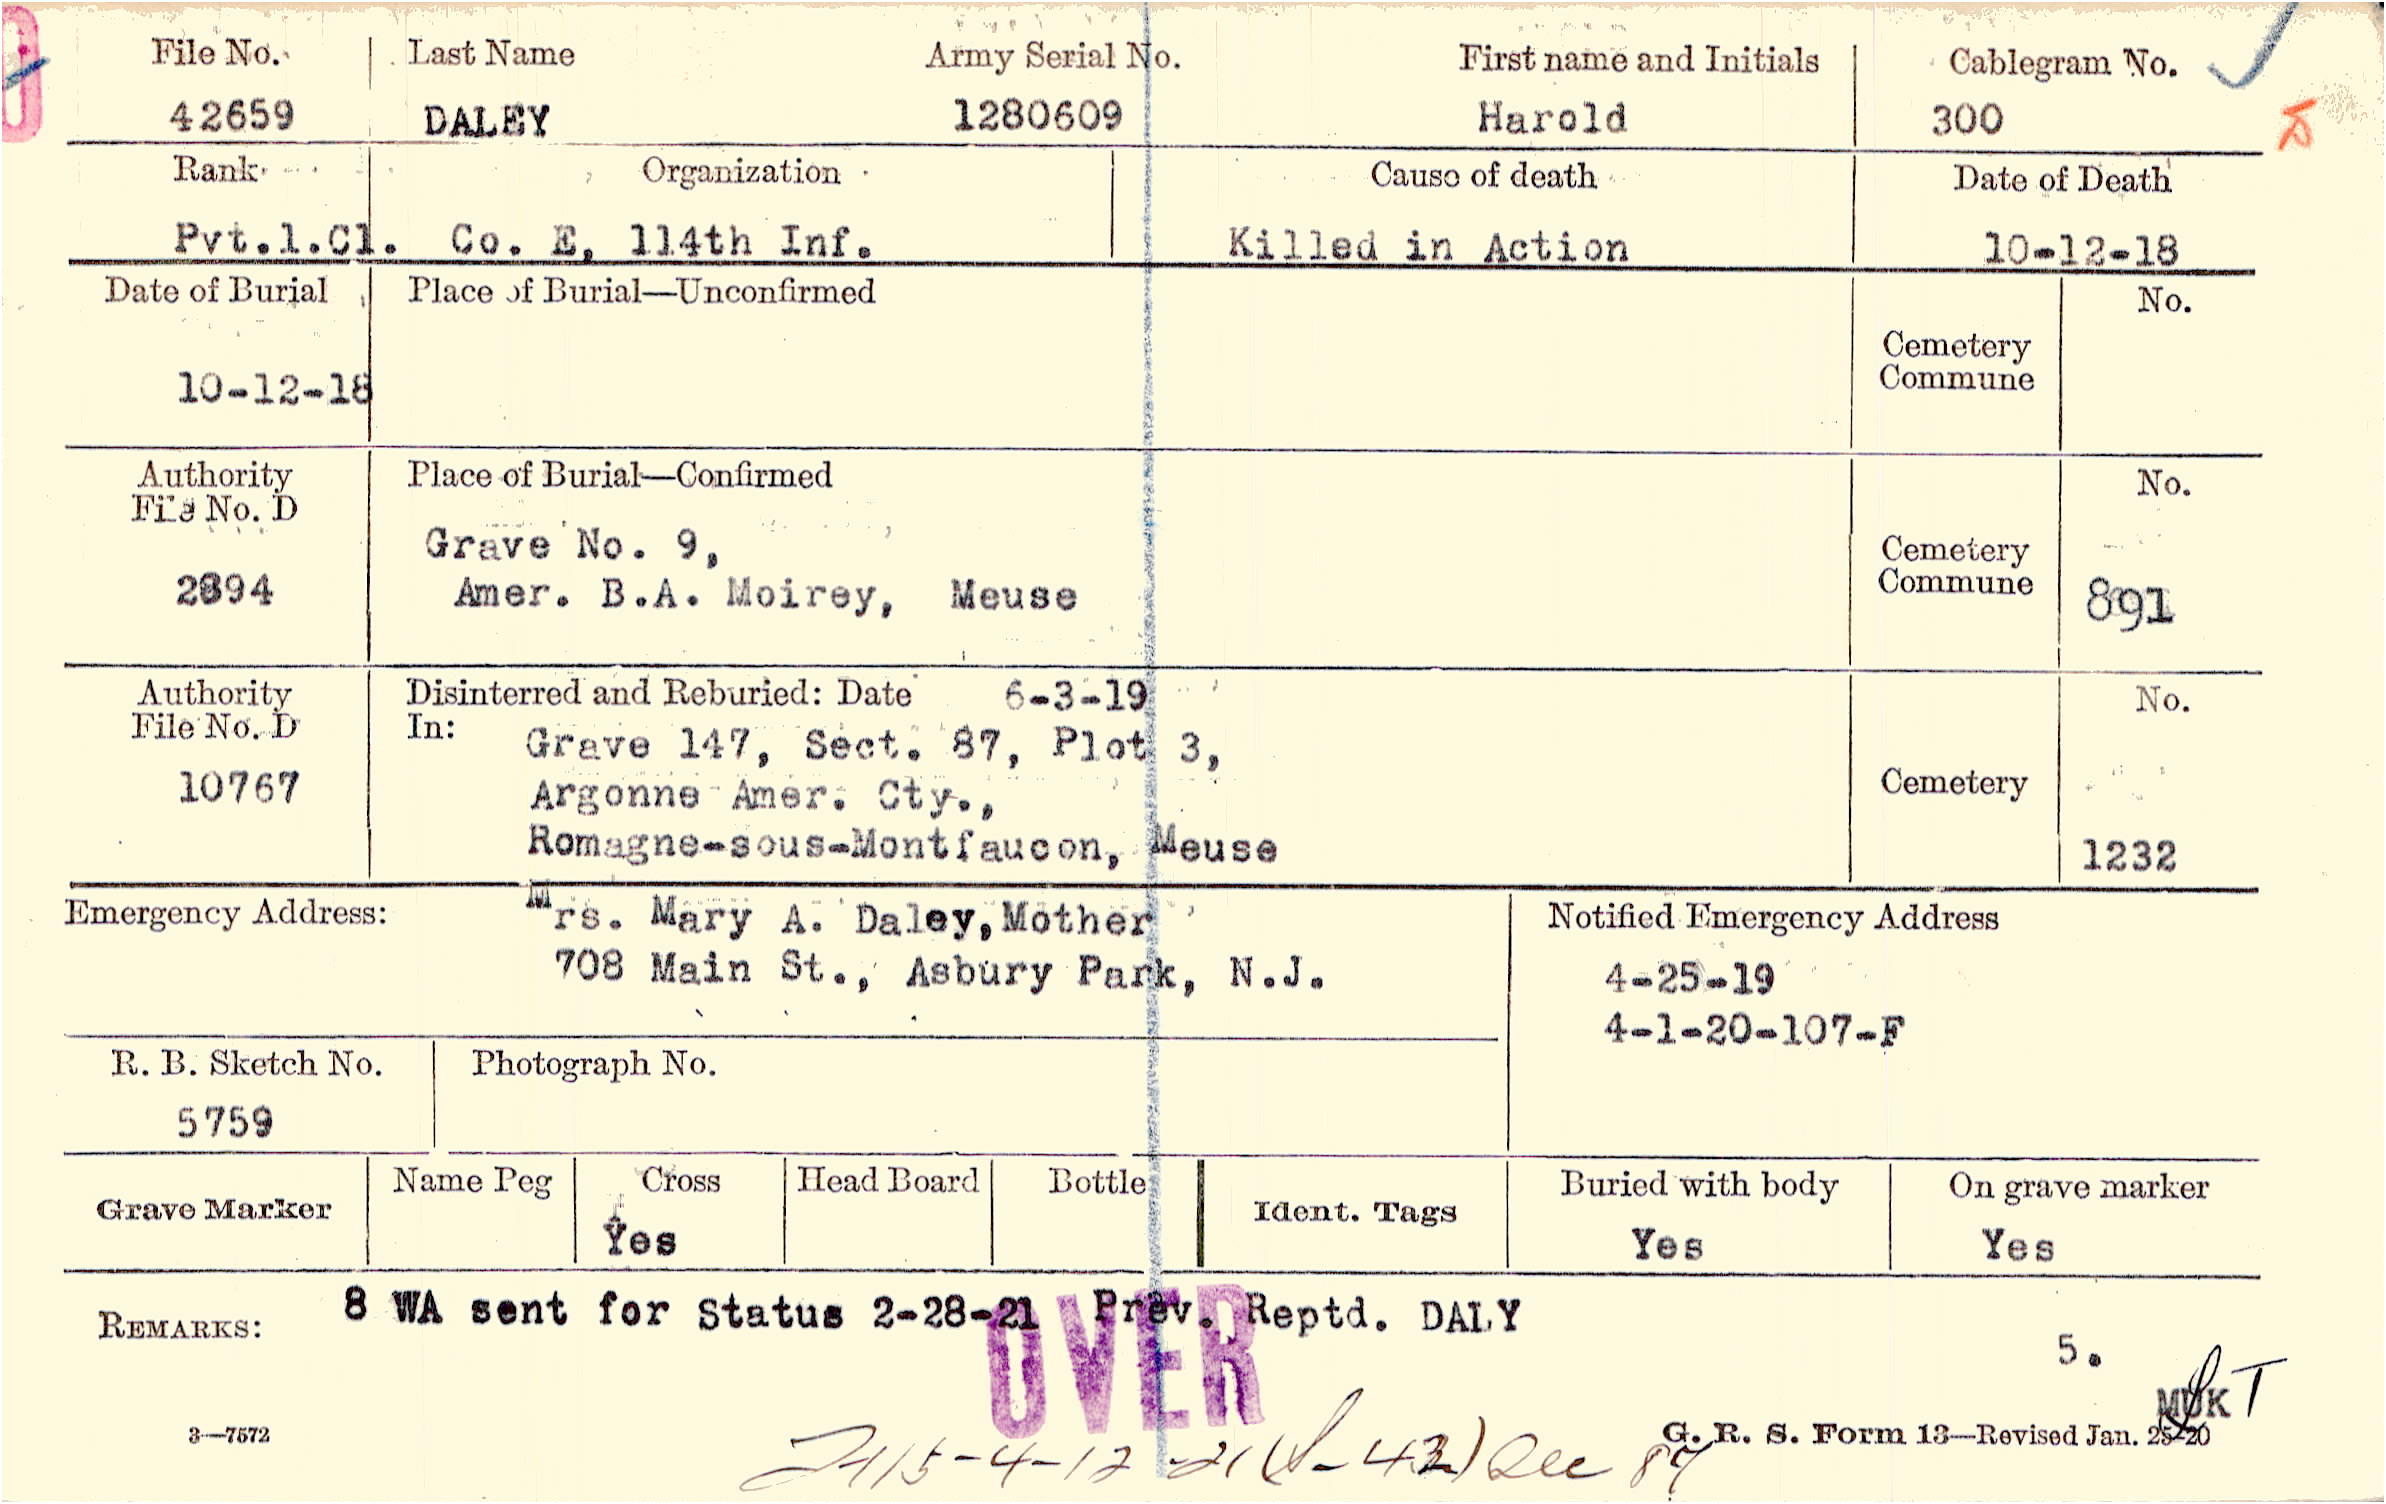 File No. Last Name Army Serial No. First name and Initials Cablegram No.
42659 DALEY 1280609 Harold 300
Rank Organization Cause of death Date of Death
Pvt.1.Cl. Co. E, 114th Inf. Killed in Action 10-12-18
Date of Burial Place of Burial—Unconfirmed No.
Cemetery
Commune
10-12-18
Authority Place of Burial—Confirmed No.
File No. D
Grave No. 9, Cemetery
2894 Amer. B.A. Moirey, Meuse Commune 891
Authority Disinterred and Reburied: Date 6-3-19 No.
File No. D In: Grave 147, Sect. 87, Plot 3,
10767 Argonne Amer. Cty., Cemetery
Romagne-sous-Montfaucon, Meuse 1232
Emergency Address: Mrs. Mary A. Daley, Mother Notified Emergency Address
708 Main St., Asbury Park, N.J. 4-25-19
4-1-20-107-F
R. B. Sketch No. Photograph No.
5759
Grave Marker Name Peg Cross Head Board Bottle Ident. Tags Buried with body On grave marker
Yes Yes Yes
REMARKS: 8 WA sent for Status 2-28-21 Prev. Reptd. DALY
OVER
5.
MUK
3—7572 G. R. S. Form 13—Revised Jan. 25-20